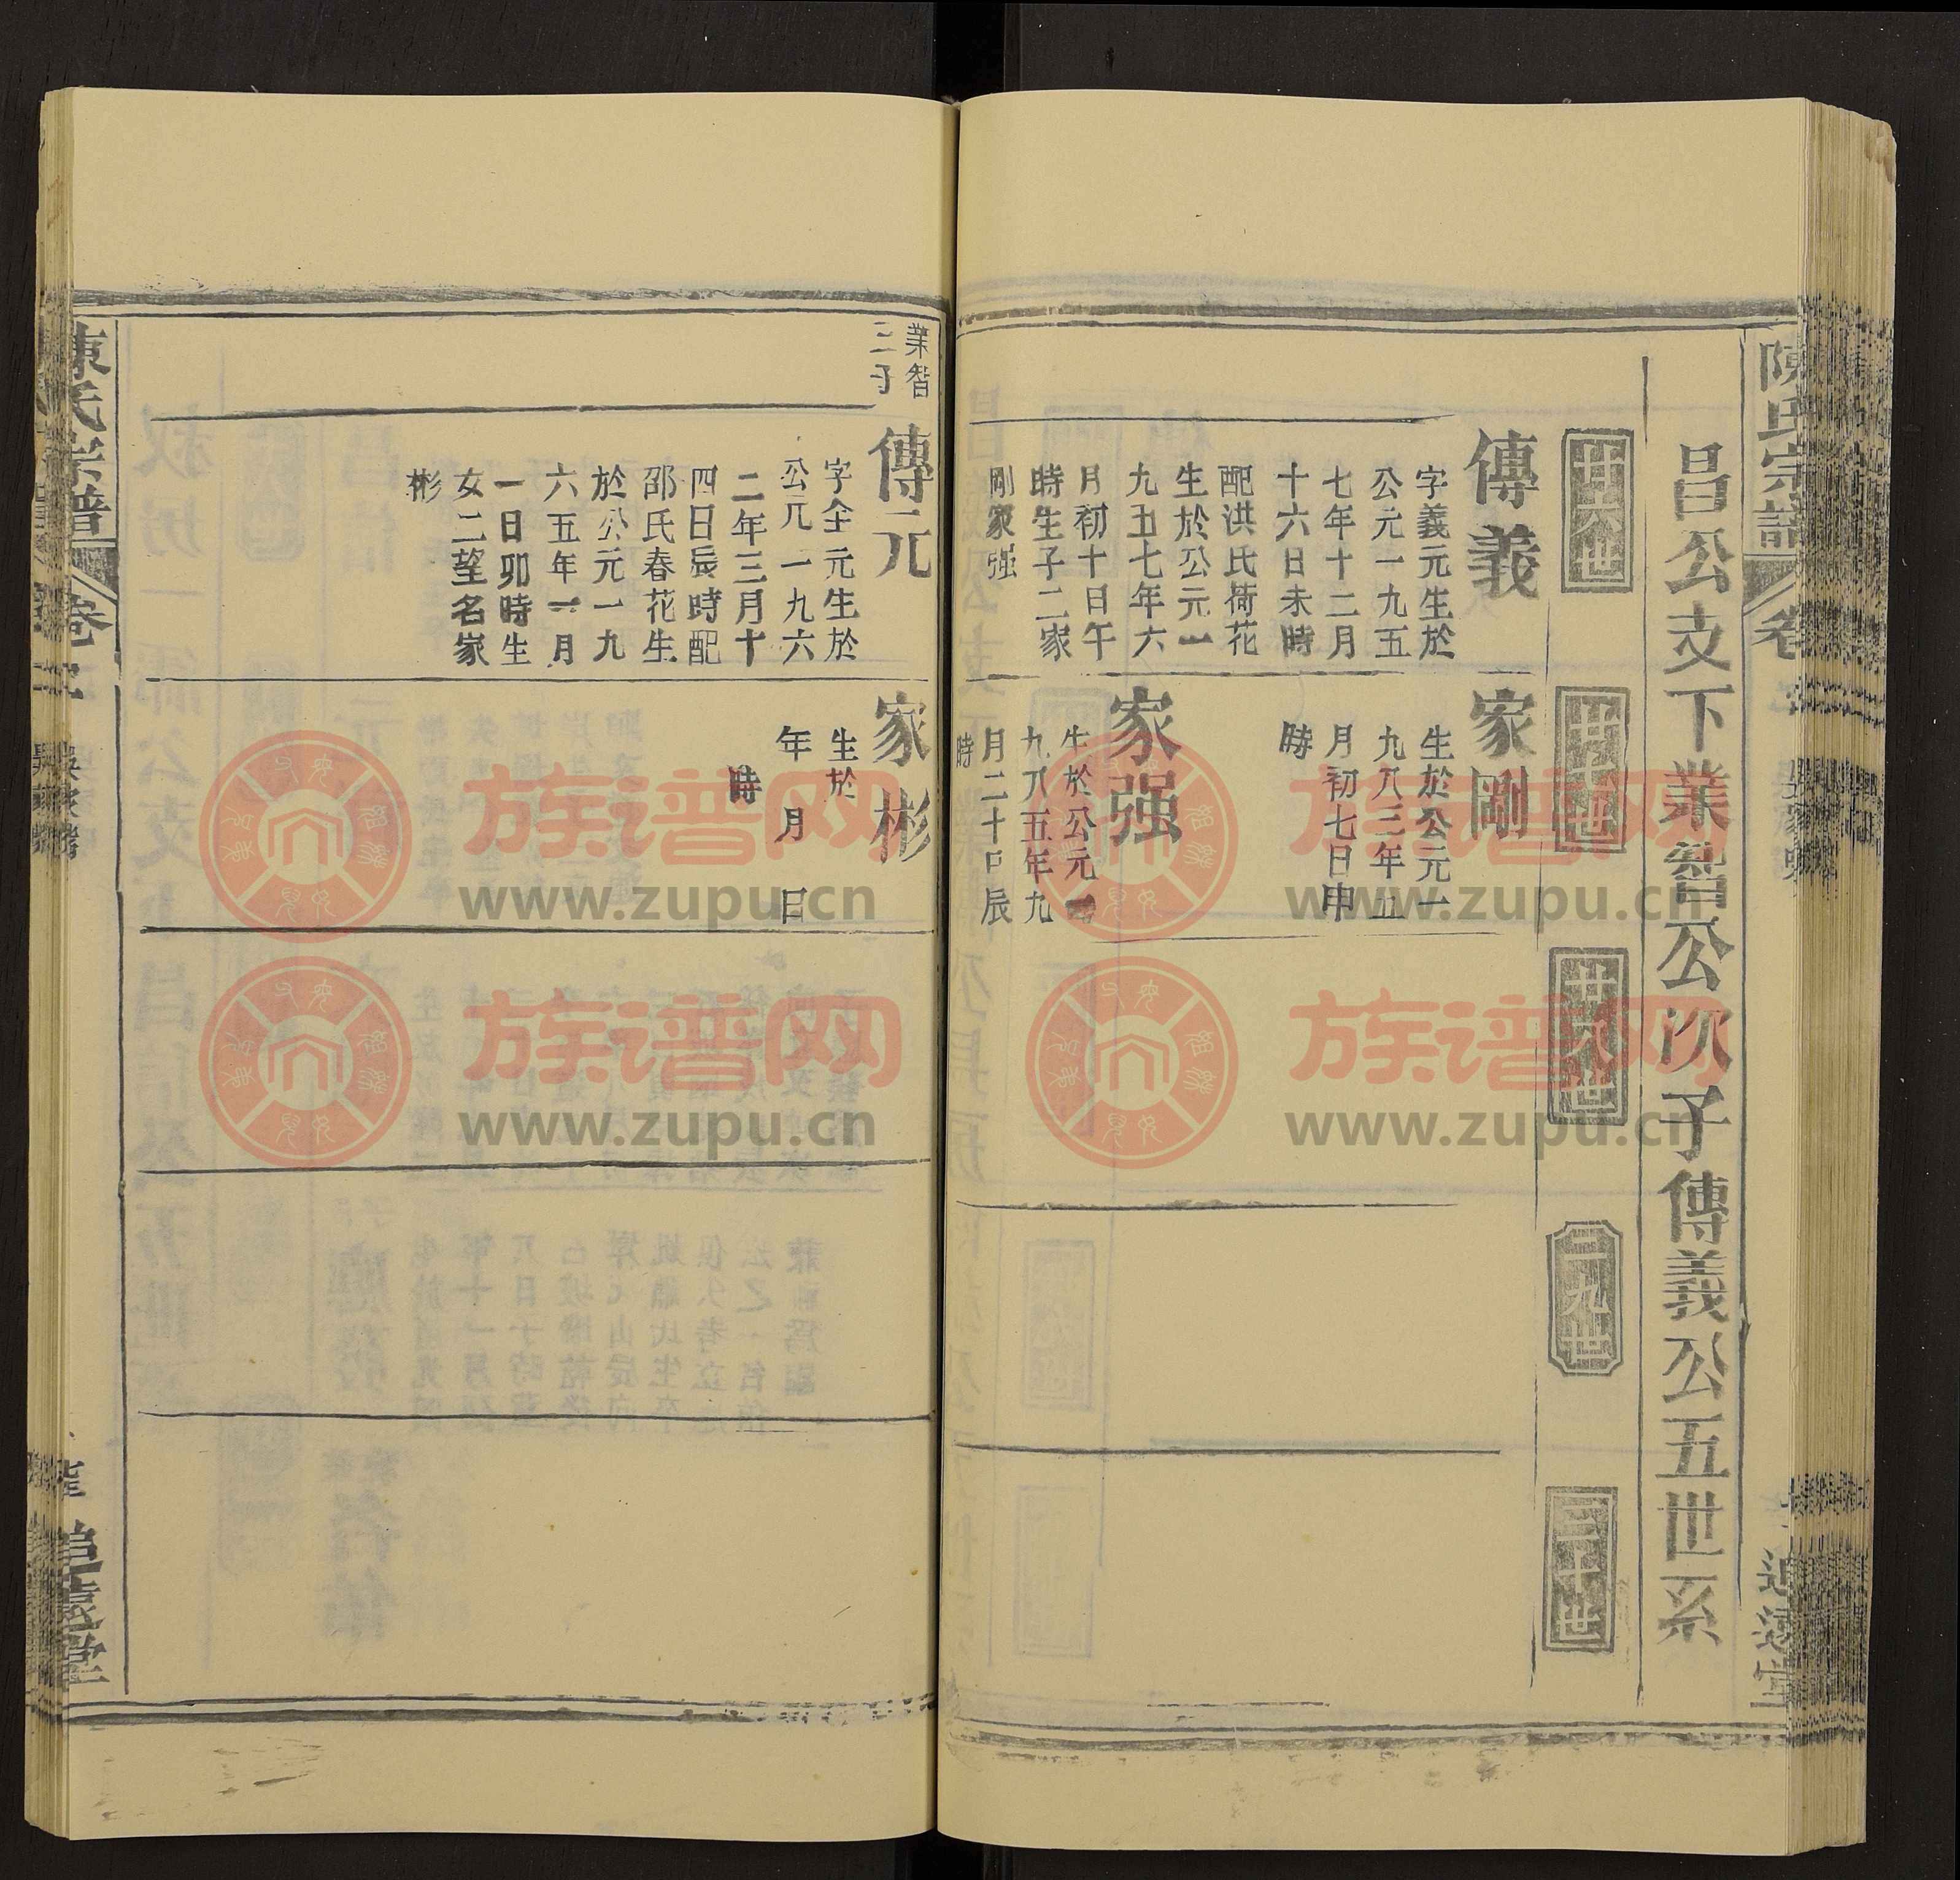 陳氏宗譜 卷
追遠堂
昌公支下業智公次子傳義公五世系
廿六世
廿七世
廿八世
二九世
三十世
傳義
字義元生於
公元一九五
七年十二月
十六日未時
配洪氏荷花
生於公元一
九五七年六
月初十日午
時生子二家
剛家强
家剛
生於公元一
九八三年五
月初七日申
時
家强
生於公元一
九八五年九
月二十日辰
時
業智
三子
傳元
字全元生於
公元一九六
二年三月十
四日辰時配
邵氏春花生
於公元一九
六五年一月
一日卯時生
女二望名家
彬
家彬
生於
年 月 日
時
陳氏宗譜 卷
追遠堂
族谱网
www.zupu.cn
族谱网
www.zupu.cn
族谱网
www.zupu.cn
族谱网
www.zupu.cn